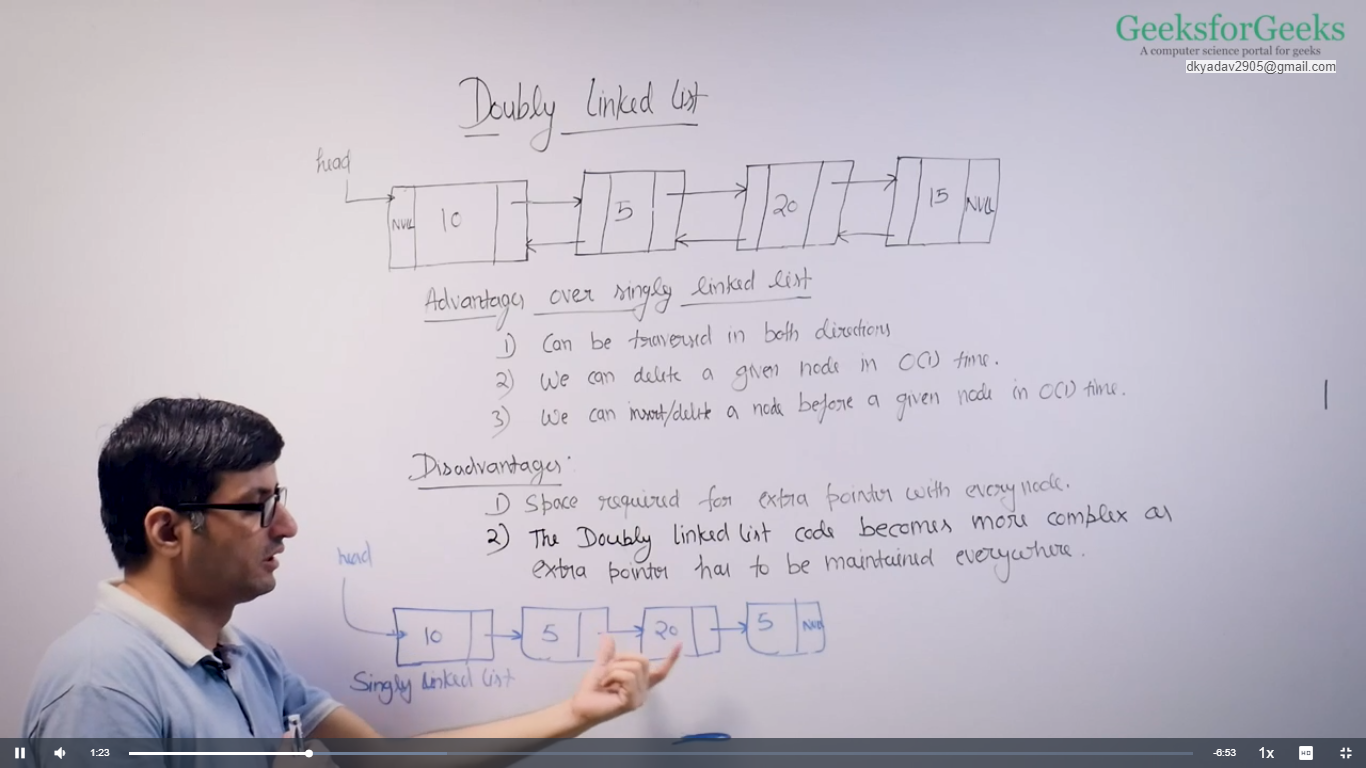 GeeksforGeeks
A computer science portal for geeks
dkyadav2905@gmail.com
Doubly linked list
head
NULL 10 5 20 15 NULL
Advantages over singly linked list
1) Can be traversed in both directions
2) We can delete a given node in O(1) time.
3) We can insert/delete a node before a given node in O(1) time.
Disadvantages:
1) Space required for extra pointer with every node.
2) The Doubly linked list code becomes more complex as
extra pointer has to be maintained everywhere.
head
10 5 20 5 NULL
Singly linked list
1:23 -6:53 1x HD